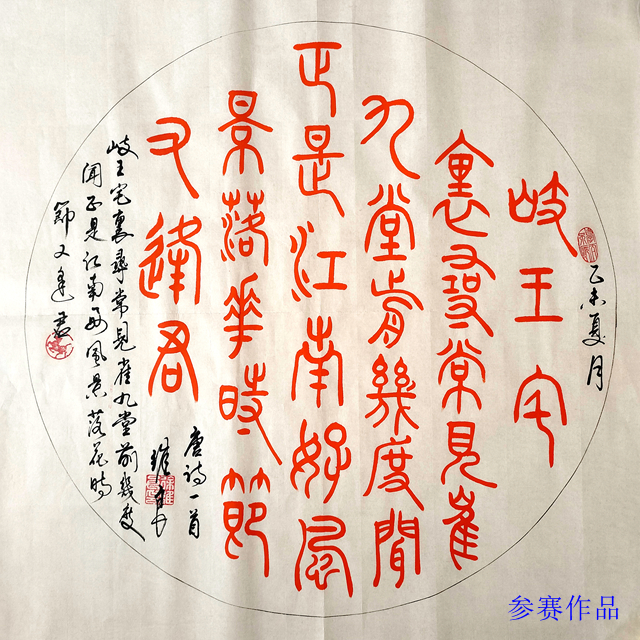 乙未夏月
岐王宅
裏尋常見崔
九堂前幾度聞
正是江南好風
景落華時節
又逢君
唐詩一首
岐王宅裏尋常見崔九堂前幾度
聞正是江南好風景落花時
節又逢君
参赛作品